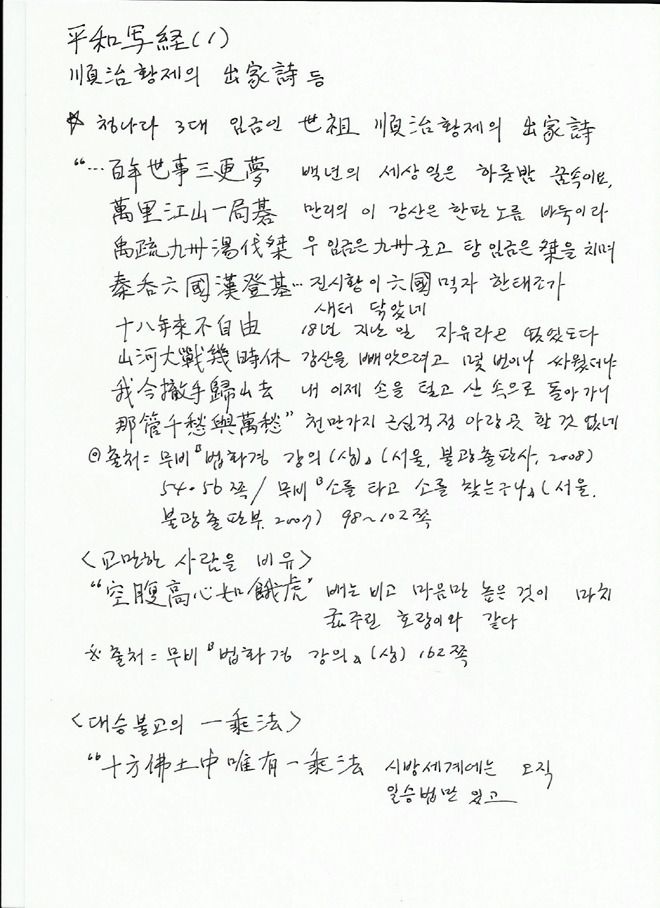 平和写経(1)
順治황제의 出家詩 등
☆ 청나라 3대 임금인 世祖 順治황제의 出家詩
“…百年世事三更夢 백년의 세상일은 하룻밤 꿈속이요,
萬里江山一局碁 만리의 이 강산은 한판 노름 바둑이라
禹疏九州湯伐桀 우 임금은 九州 긋고 탕 임금은 桀을 치며
秦呑六國漢登基… 진시황이 六國 먹자 한태조가
새터 닦았네
十八年來不自由 18년 지난 일 자유라곤 없었도다
山河大戰幾時休 강산을 뺏으려고 몇 번이나 싸웠더냐
我今撤手歸山去 내 이제 손을 털고 산 속으로 돌아가니
那管千愁與萬愁” 천만가지 근심걱정 아랑곳 할 것 없네
◎ 출처= 무비『법화경 강의(상)』(서울, 불광출판사, 2008)
54·56쪽/ 무비『소를 타고 소를 찾는구나』(서울,
불광출판부, 2007) 98~102쪽
<교만한 사람을 비유>
“空腹高心如餓虎” 배는 비고 마음만 높은 것이 마치
굶주린 호랑이와 같다
※ 출처= 무비『법화경 강의』(상) 162쪽
<대승불교의 一乘法>
“十方佛土中唯有一乘法 시방세계에는 오직
일승법만 있고